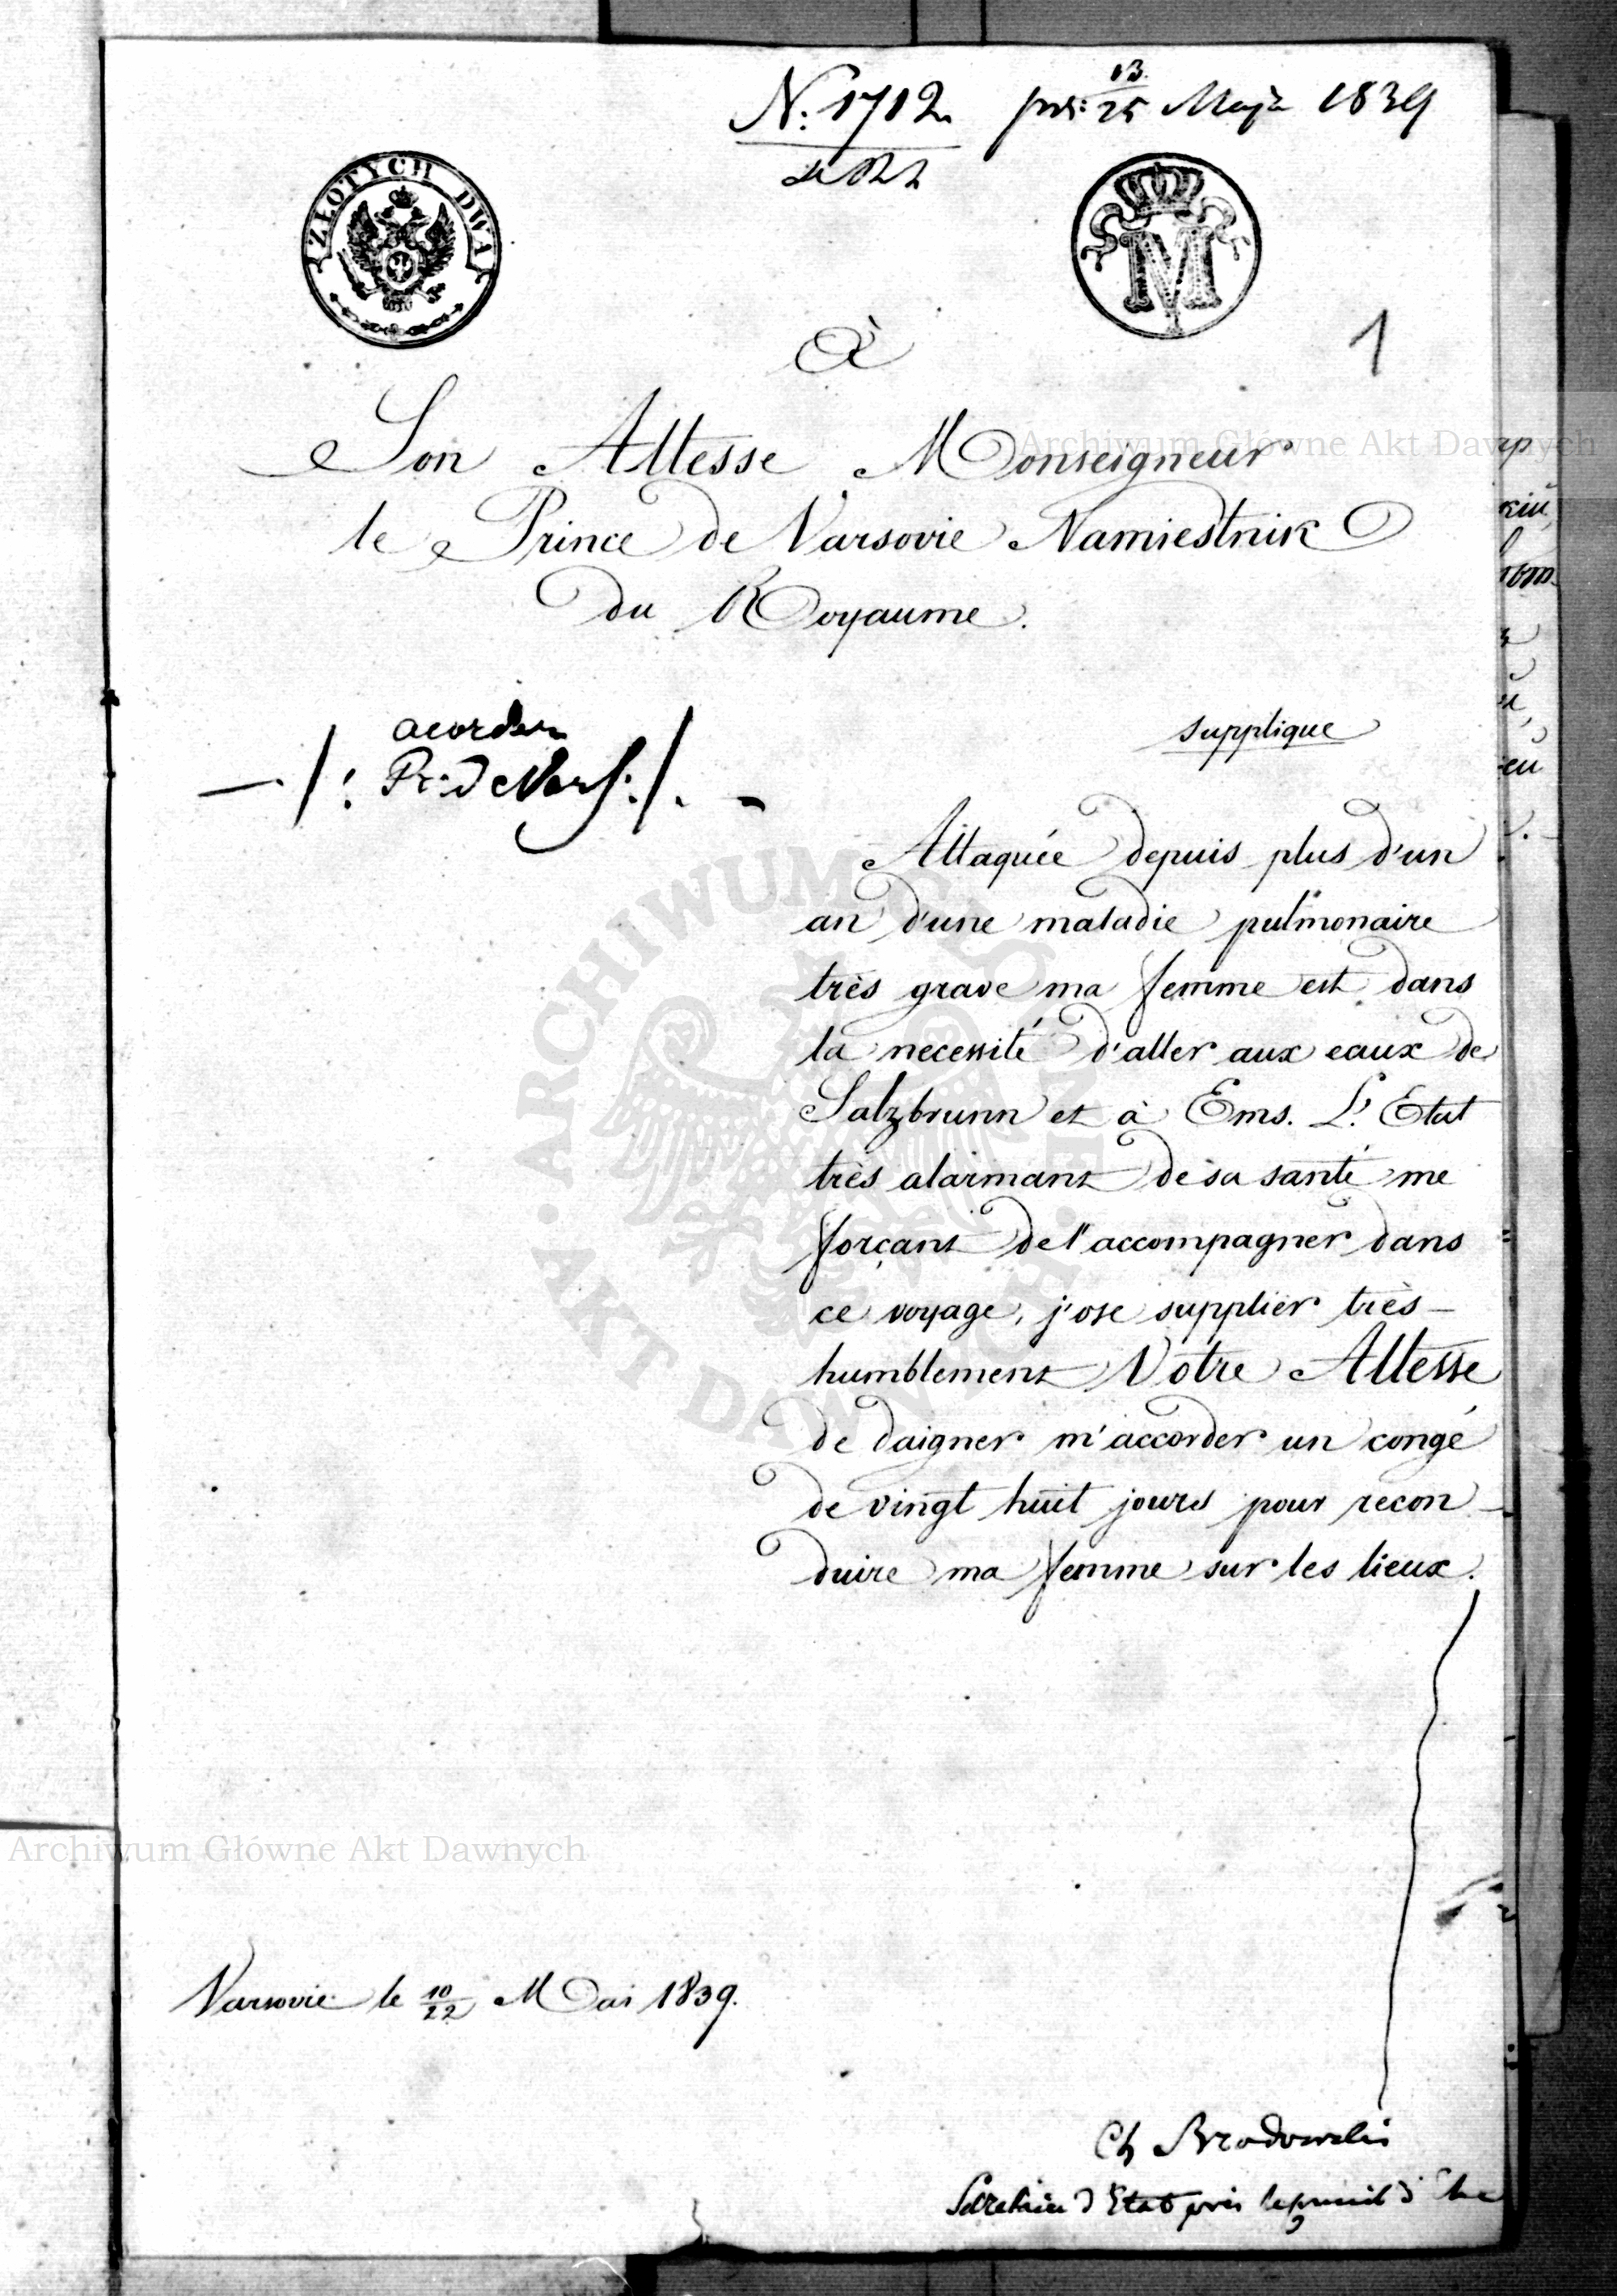 N: 1712 pr: 13/25 Maja 1839
ZŁOTYCH DWA
M
1
À
Son Altesse Monseigneur
le Prince de Varsovie Namiestnik
du Royaume.
acorder
Pr: de Vars:
supplique
Attaquée depuis plus d'un
an d'une maladie pulmonaire
très grave ma femme est dans
la necessité d'aller aux eaux de
Salzbrunn et à Ems. L'Etat
très alarmant de sa santé me
forçant de l'accompagner dans
ce voyage, j'ose supplier très-
humblement Votre Altesse
de daigner m'accorder un congé
de vingt huit jours pour recon-
duire ma femme sur les lieux.
Varsovie le 10/22 Mai 1839.
Ch Brodowski
Secretaire d'Etat près le conseil d'
Archiwum Główne Akt Dawnych
Archiwum Główne Akt Dawnych